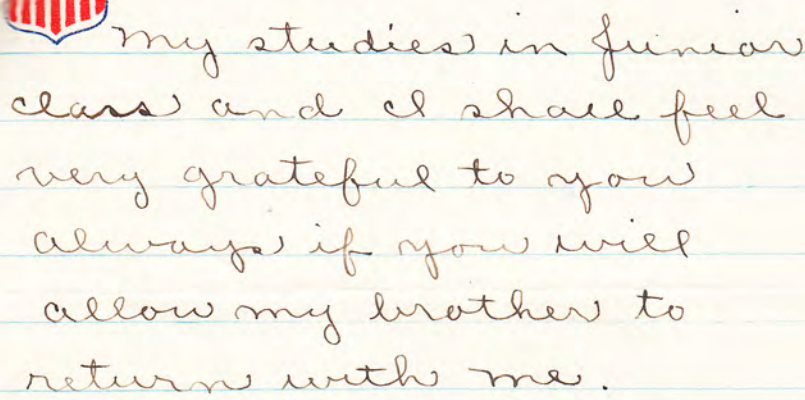 my studies in Junior
class and I shall feel
very grateful to you
always if you will
allow my brother to
return with me.